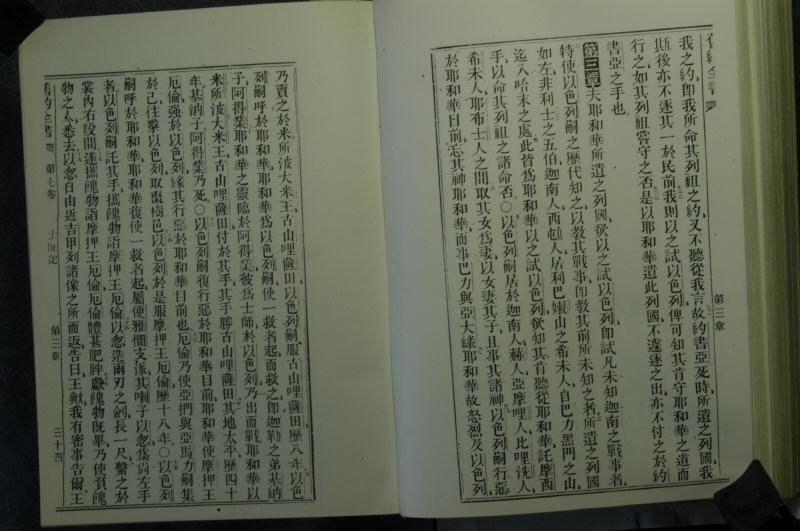 舊約全書
第三章
我之約卽我所命其列祖之約又不聽從我言故約書亞死時所遺之列國我
斯後亦不逐其一於民前我則以之試以色列俾可知其肯守耶和華之道而
行之如其列祖嘗守之否是以耶和華遺此列國不遽逐之出亦不付之於約
書亞之手也
第三章夫耶和華所遺之列國欲以之試以色列卽試凡未知迦南之戰事者
特使以色列嗣之歷代知之以教其戰事卽教其前所未知之者所遺之列國
如左非利士之五伯迦南人西頓人居利巴嫩山之希未人自巴力黑門之山
迄入哈末之處此皆爲耶和華以之試以色列欲知其肯聽從耶和華託摩西
手以命其列祖之諸命否○以色列嗣居於迦南人赫人亞摩哩人比哩洗人
希未人耶布士人之間取其女爲妻以女妻其子且事其諸神以色列嗣行惡
於耶和華目前忘其神耶和華而事巴力與亞大綠耶和華故怒烈及以色列
乃賣之於米所波大米王古山哩薩田以色列嗣服古山哩薩田歷八年以色
列嗣呼於耶和華耶和華爲以色列嗣使一救者起而救之卽迦勒之弟基納
子阿得業耶和華之靈臨於阿得業彼爲士師於以色列乃出而戰耶和華以
米所波大米王古山哩薩田付於其手其手勝古山哩薩田其地太平歷四十
年基納子阿得業乃死○以色列嗣復行惡於耶和華目前耶和華使摩押王
厄倫強於以色列緣其行惡於耶和華目前也厄倫乃使亞捫與亞馬力嗣集
於己往擊以色列取棗樹邑以色列於是服摩押王厄倫歷十八年○以色列
嗣呼於耶和華耶和華復使一救者起屬便雅憫支派其喇子以忽爲尚左手
者以色列嗣託其手攜餽物詣摩押王厄倫以忽造兩刃之劍長一尺繫之於
裳內右股間遂攜餽物詣摩押王厄倫厄倫體甚肥胖獻餽物旣畢乃使負餽
物之人悉去以忽自由近吉甲列諸像之所而返告曰王歟我有密事告爾王
舊約全書
第七卷
士師記
第三章
三十四